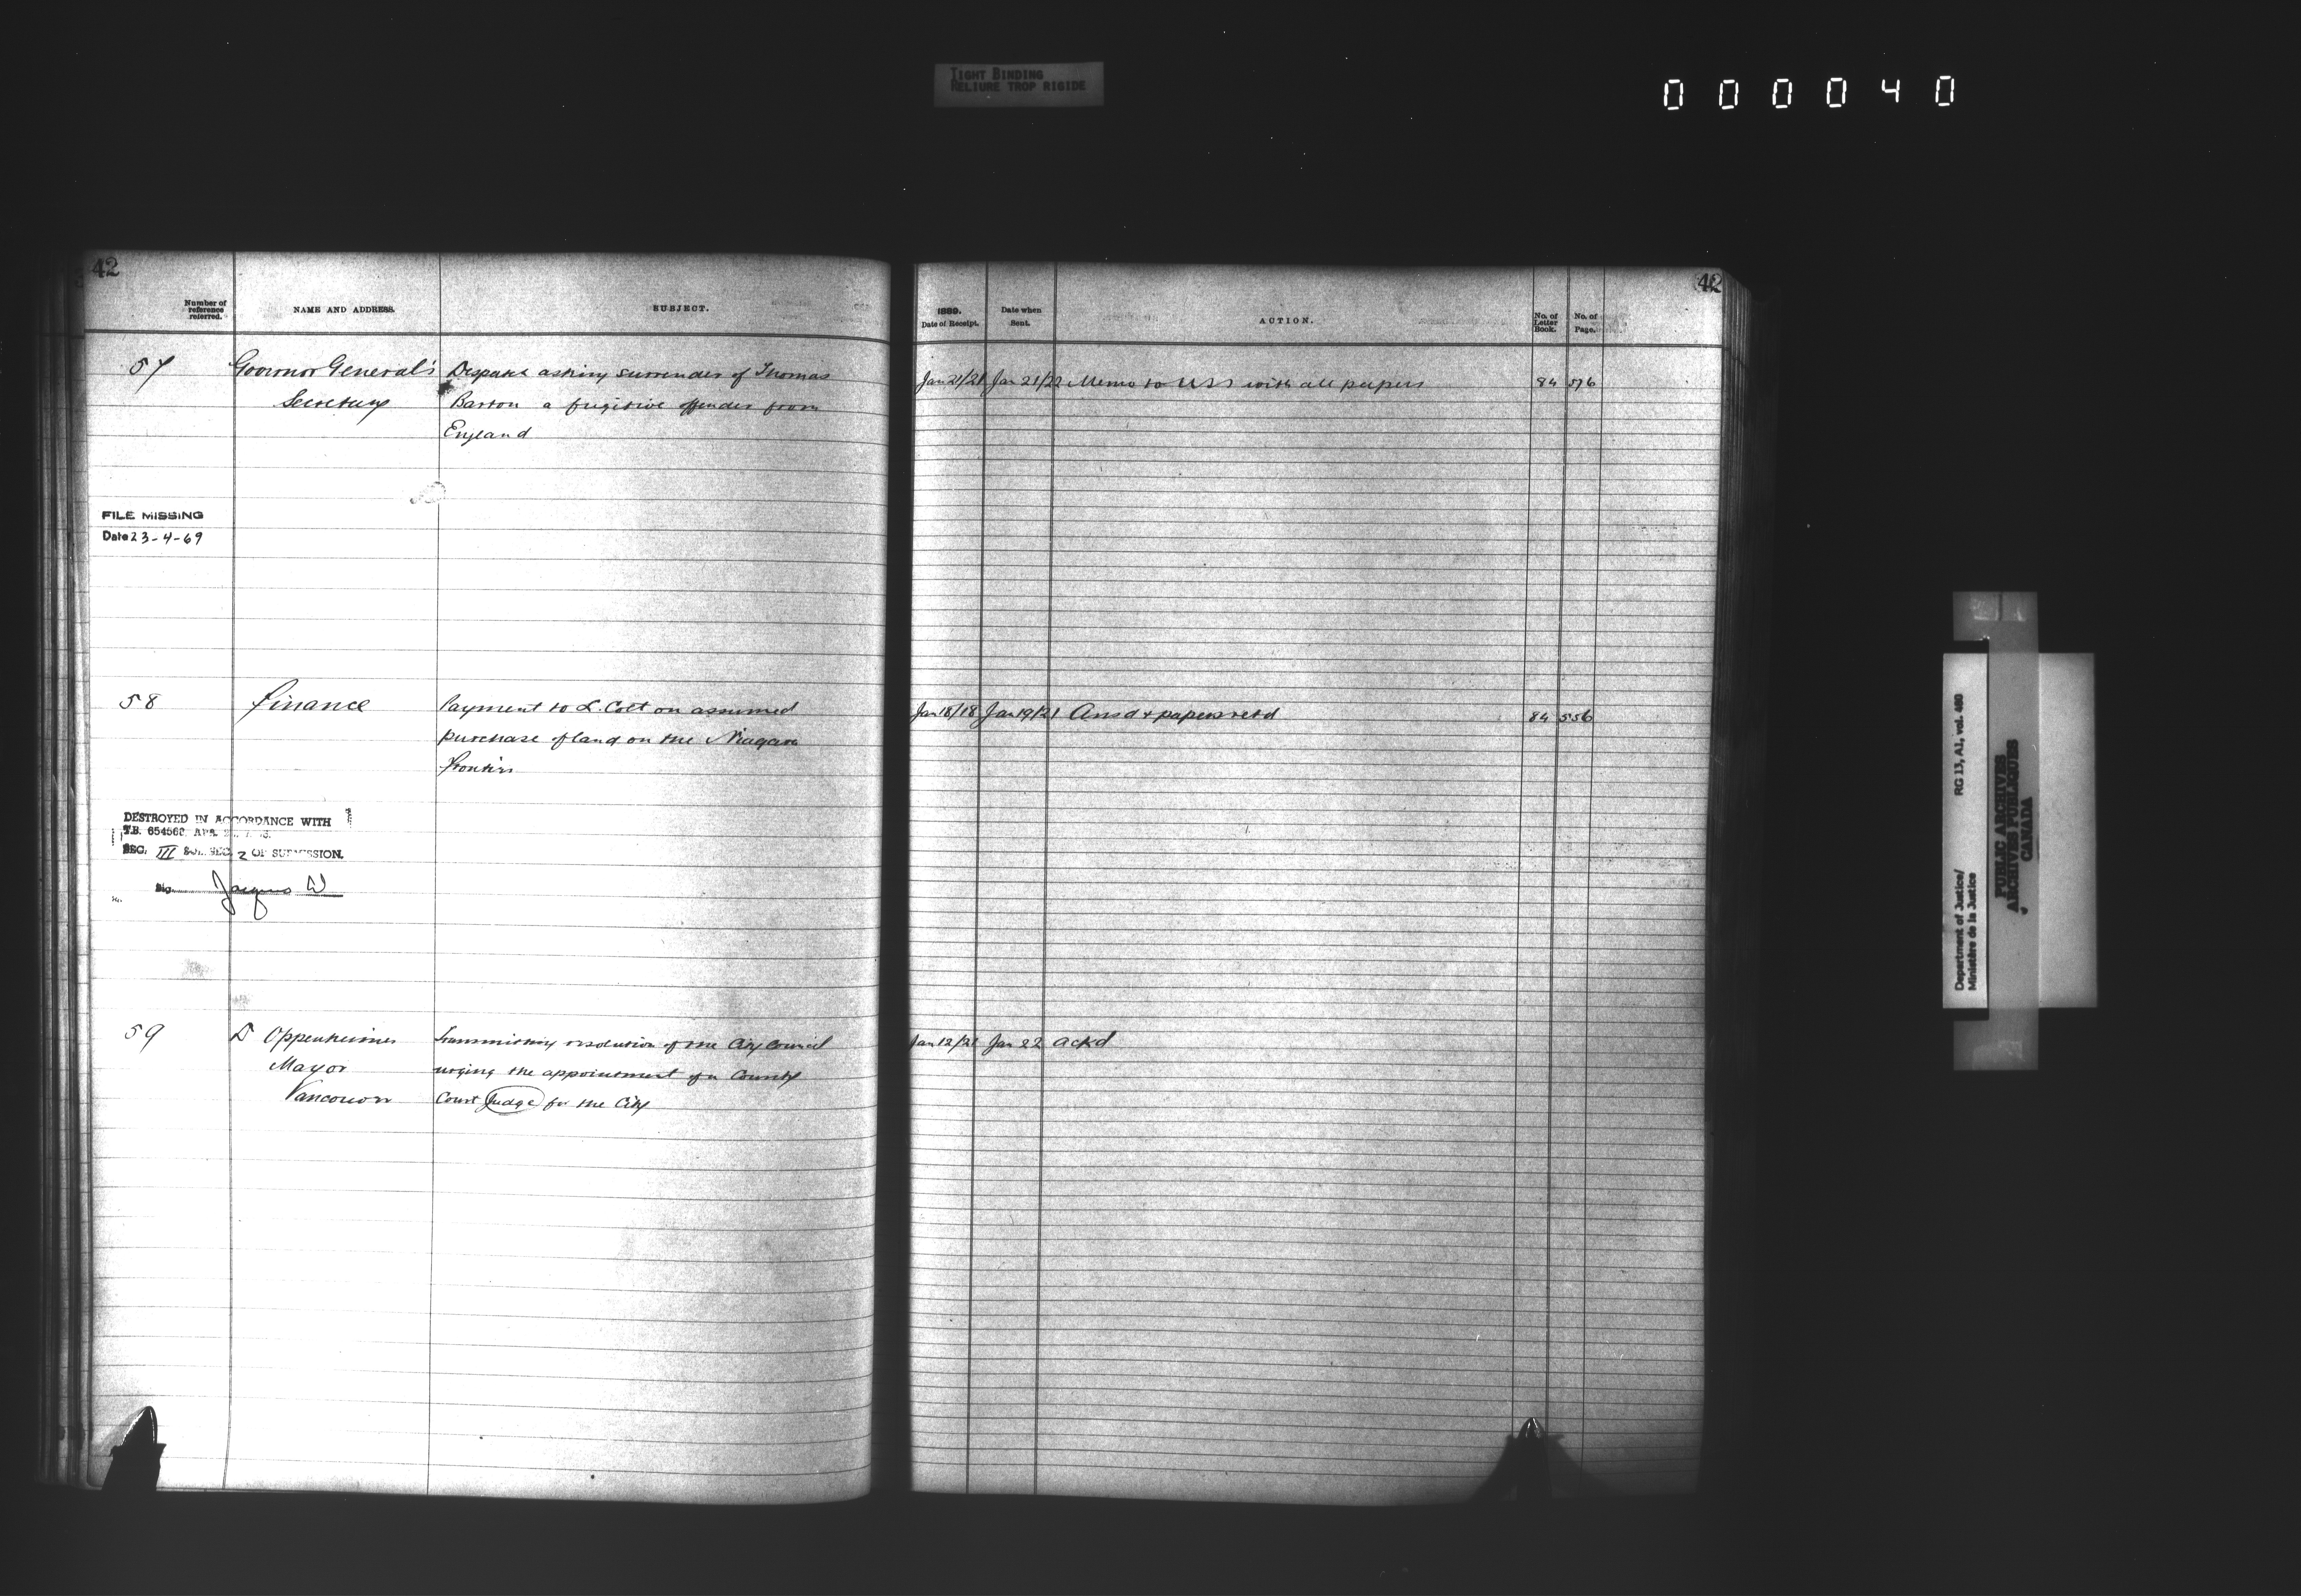 TIGHT BINDING
RELIURE TROP RIGIDE
000040
42
Number of reference referred.
NAME AND ADDRESS.
SUBJECT.
57
Governor General's
Secretary
Despatch asking surrender of Thomas
Barton a fugitive offender from
England
FILE MISSING
Date 23-4-69
58
Finance
Payment to L. Colt on assumed
purchase of land on the Niagara
frontier
DESTROYED IN ACCORDANCE WITH
T.B. 654568 APR.
SEC. III SUB. SEC. 2 OF SUBMISSION.
Sig. Jacques W
59
D Oppenheimer
Mayor
Vancouver
Transmitting resolution of the City Council
urging the appointment of a County
Court Judge for the City
42
1889.
Date of Receipt.
Date when
Sent.
ACTION.
No. of
Letter
Book.
No. of
Page.
Jan 21/21 Jan 21/22 Memo to USS with all papers 84 576
Jan 18/18 Jan 19/21 Ansd + papers retd 84 556
Jan 12/21 Jan 22 ackd
Department of Justice/
Ministère de la Justice
RG 13, A1, vol. 460
PUBLIC ARCHIVES
ARCHIVES PUBLIQUES
CANADA